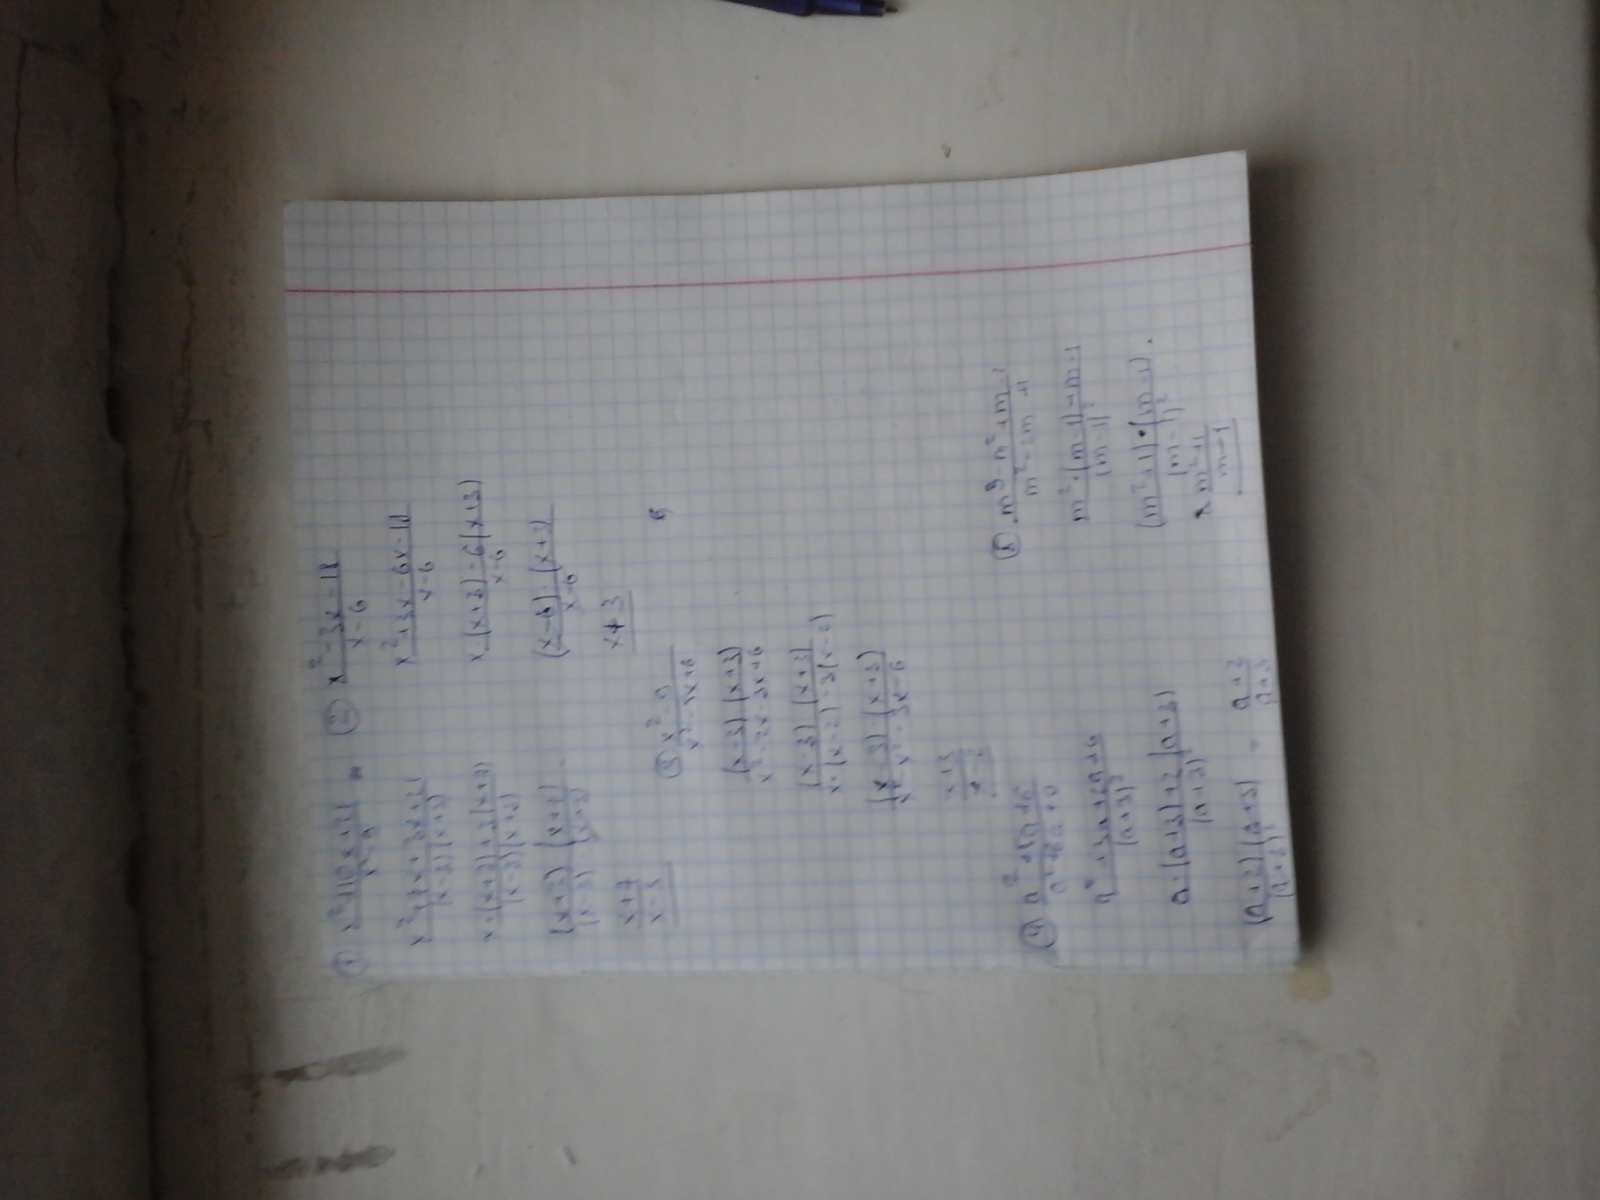 ① (x²+10x+21)/(x²-9) =
(x²+7x+3x+21)/((x-3)(x+3))
(x·(x+7)+3(x+7))/((x-3)(x+3))
((x+3)(x+7))/((x-3)(x+3))
(x+7)/(x-3)
② (x²-3x-18)/(x-6)
(x²+3x-6x-18)/(x-6)
(x(x+3)-6(x+3))/(x-6)
((x-6)·(x+3))/(x-6)
x+3
③ (x²-9)/(x²-5x+6)
((x-3)(x+3))/(x²-2x-3x+6)
((x-3)(x+3))/(x·(x-2)-3(x-2))
(x+3)/(x-2)
④ (a²+5a+6)/(a²+6a+9)
(a²+3a+2a+6)/(a+3)²
(a·(a+3)+2(a+3))/(a+3)²
((a+2)(a+3))/(a+3)² = (a+2)/(a+3)
⑤ (m³-m²+m-1)/(m²-2m+1)
(m²·(m-1)+m-1)/(m-1)²
((m²+1)·(m-1))/(m-1)²
(m²+1)/(m-1)